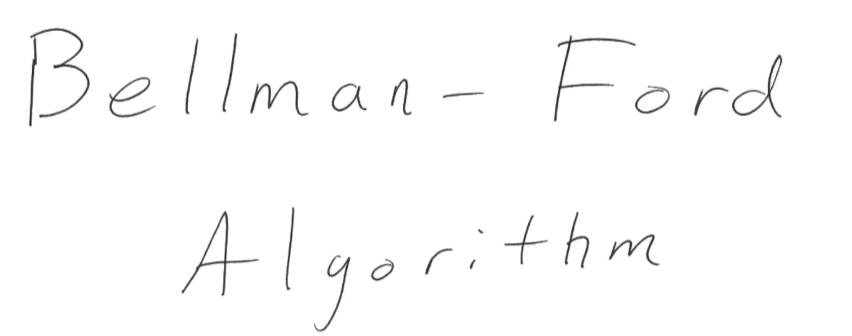 Bellman-Ford
Algorithm